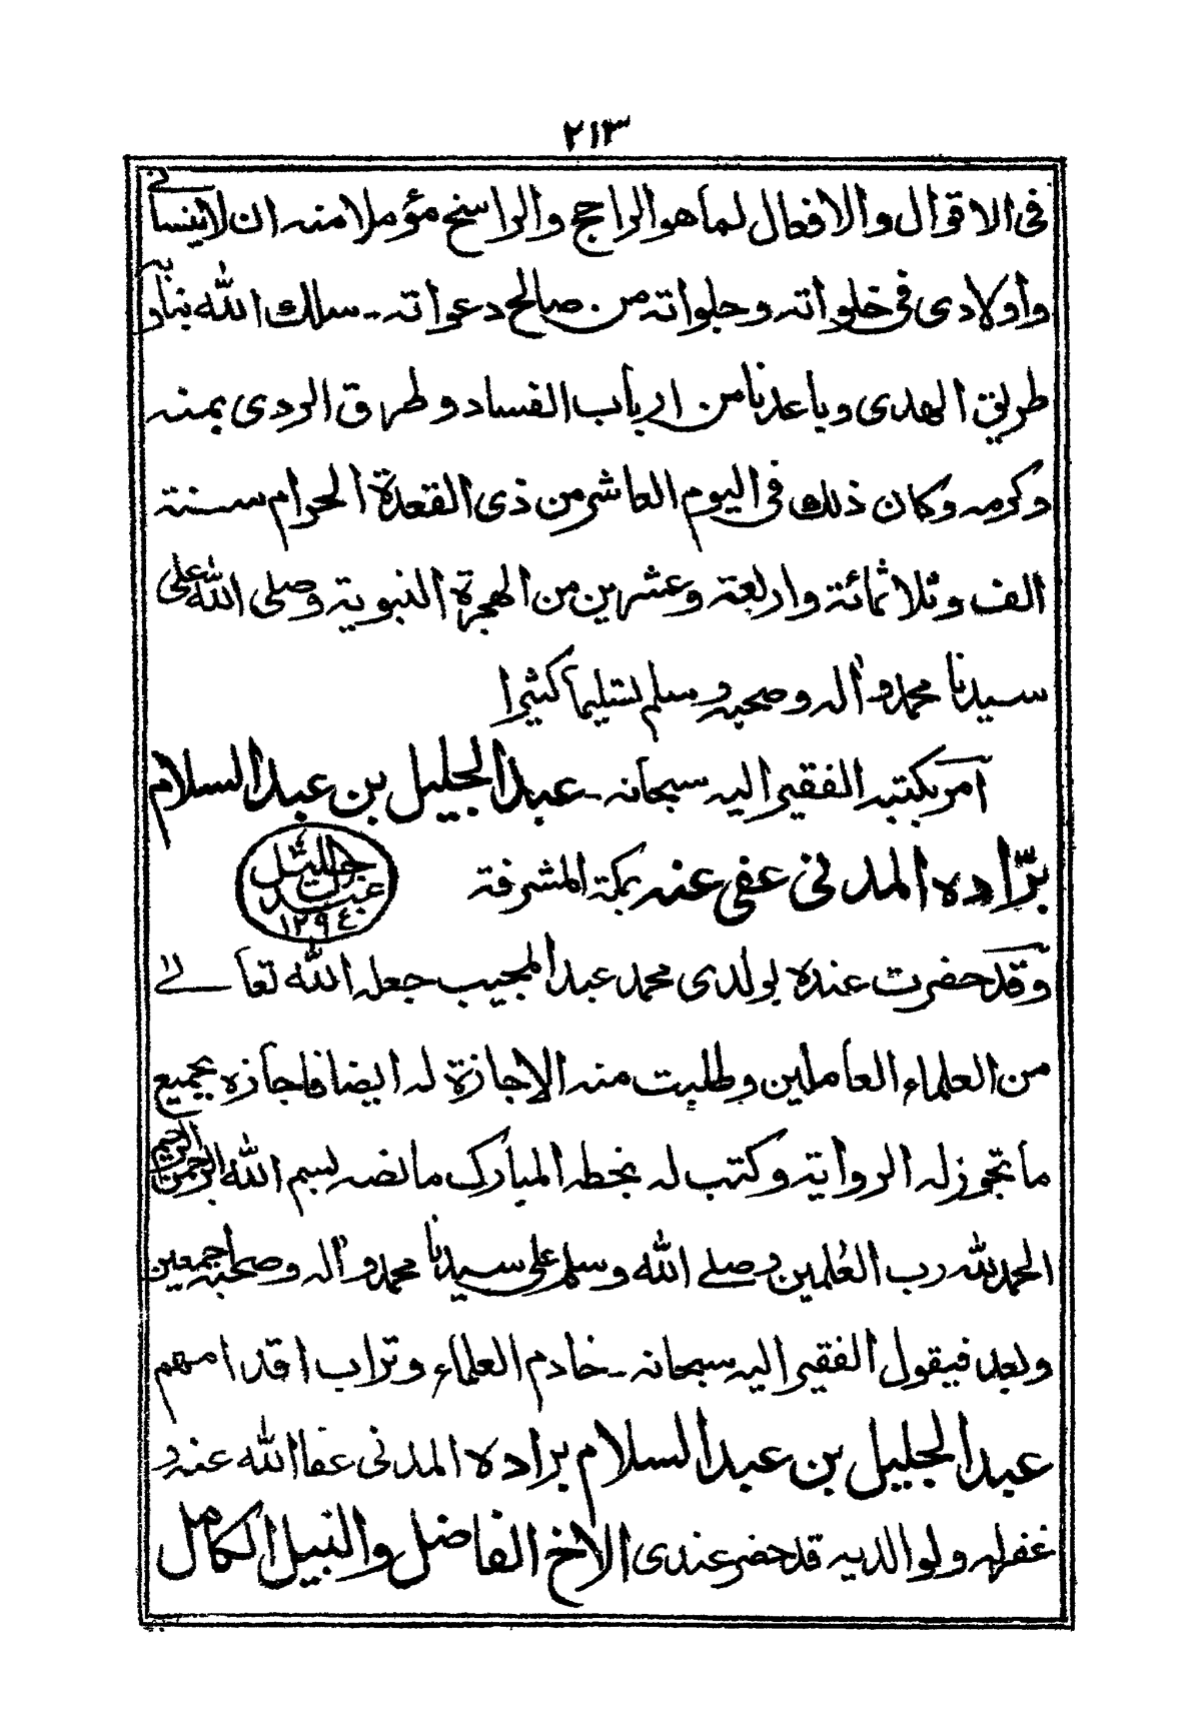 ٢١٣
فى الاقوال والافعال لما هو الراجح والراسخ مؤملا منه ان لا ينسانى
واولادى فى خلواته وجلواته من صالح دعواته - سلك الله بنا وبه
طريق الهدى وباعدنا من ارباب الفساد وطرق الردى بمنه
وكرمه وكان ذلك فى اليوم العاشر من ذى القعدة الحرام سنة
الف وثلاثمائة واربعة وعشرين من الهجرة النبوية وصلى الله على
سيدنا محمد واله وصحبه وسلم تسليما كثيرا
آمر بكتبه الفقير اليه سبحانه - عبد الجليل بن عبد السلام
برّاده المدنى عفى عنه بمكة المشرفة
عبد الجليل
١٢٩٤
وقد حضرت عنده بولدى محمد عبد المجيب جعله الله تعالے
من العلماء العاملين وطلبت منه الاجازة له ايضا فاجازه بجميع
ما تجوز له الرواية وكتب له بخطه المبارك ما نصه بسم الله الرحمن الرحيم
الحمد لله رب العٰلمين وصلے الله وسلم على سيدنا محمد واله وصحبه اجمعين
وبعد فيقول الفقير اليه سبحانه - خادم العلماء وتراب اقدامهم
عبد الجليل بن عبد السلام براده المدنى عفا الله عنه و
غفر له ولوالديه قد حضر عندى الاخ الفاضل والنبيل الكامل